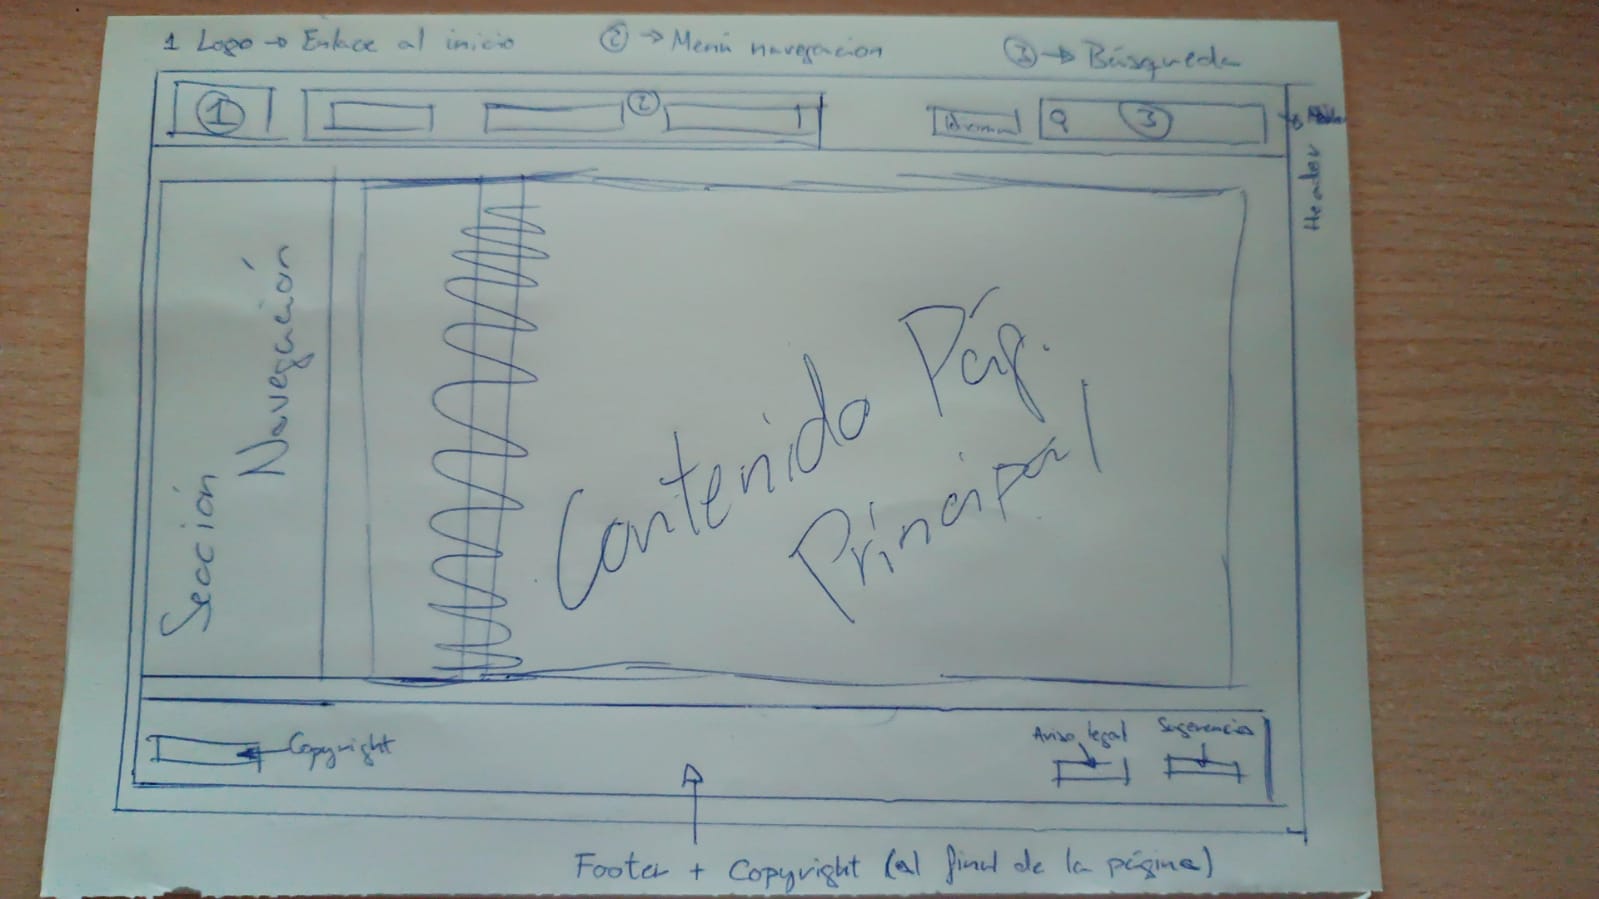 1 Logo → Enlace al inicio
② → Menú navegación
③ → Búsqueda
1
2
Q 3
Header
Sección
Navegación
Contenido Pág.
Principal
Copyright
Aviso legal
Sugerencias
Footer + Copyright (al final de la página)